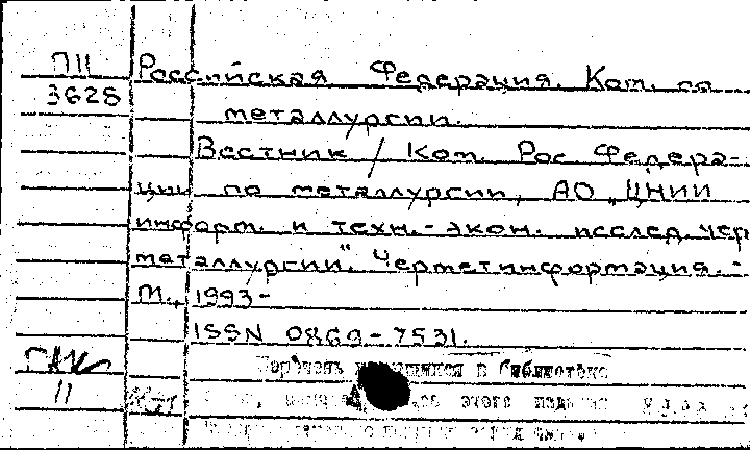 П11 Российская Федерация. Ком. по
3628 металлургии.
Вестник / Ком. Рос. Федера-
ции по металлургии, АО „ЦНИИ
информ. и техн.-экон. исслед. чер
металлургии", Черметинформация. -
М., 1993-
ISSN 0869-7531.
Перечень имеющихся в библиотеке
11 этого издания